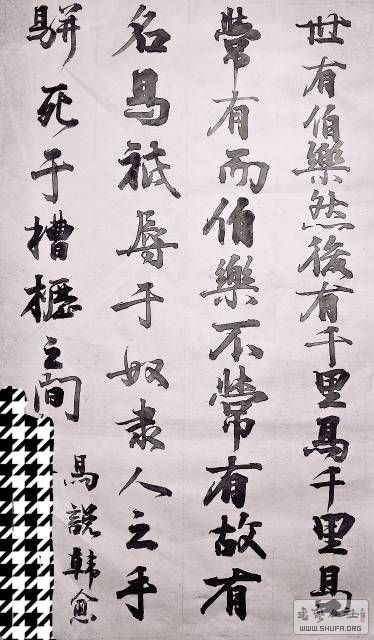 世有伯樂然後有千里馬千里馬
常有而伯樂不常有故有
名馬祗辱于奴隶人之手
駢死于槽櫪之間
馬說韓愈
WWW.SHUFA.ORG